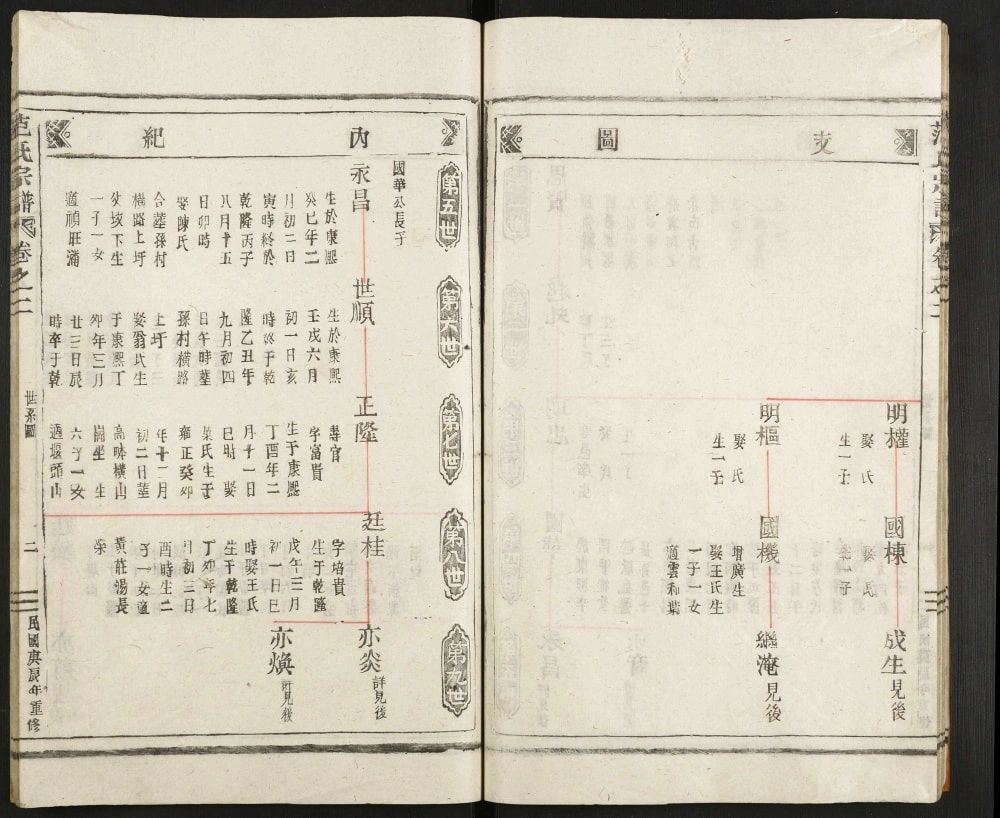 支
圖
明權
娶 氏
生一子
國棟
娶 氏
生一子
成生見後
明樞
娶 氏
生一子
國機
增廣生
娶王氏生
一子一女
適雲和葉
繼淹見後
內
紀
第五世
第六世
第七世
第八世
第九世
國華公長子
永昌
生於康熙
癸巳年二
月初二日
寅時終於
乾隆丙子
八月十五
日卯時
娶陳氏
合塟孫村
橫路上圩
一子一女
世順
生於康熙
壬戌六月
初一日亥
時終于乾
隆乙丑年
九月初四
日午時塟
孫村橫路
上圩
娶翁氏生
于康熙丁
卯年三月
廿三日辰
時卒于乾
正隆
壽官
字富貴
生于康熙
丁酉年二
月十一日
巳時 娶
葉氏生于
雍正癸卯
年十二月
初二日塟
六子一女
適堰頭山
廷桂
字培貴
生于乾隆
戊午三月
初一日巳
時娶王氏
生于乾隆
丁卯年七
月初三日
酉時生二
子一女適
黃莊湯長
榮
亦炎詳見後
亦煥詳見後
范氏宗譜
卷之二
世系圖
二
民國庚辰年重修